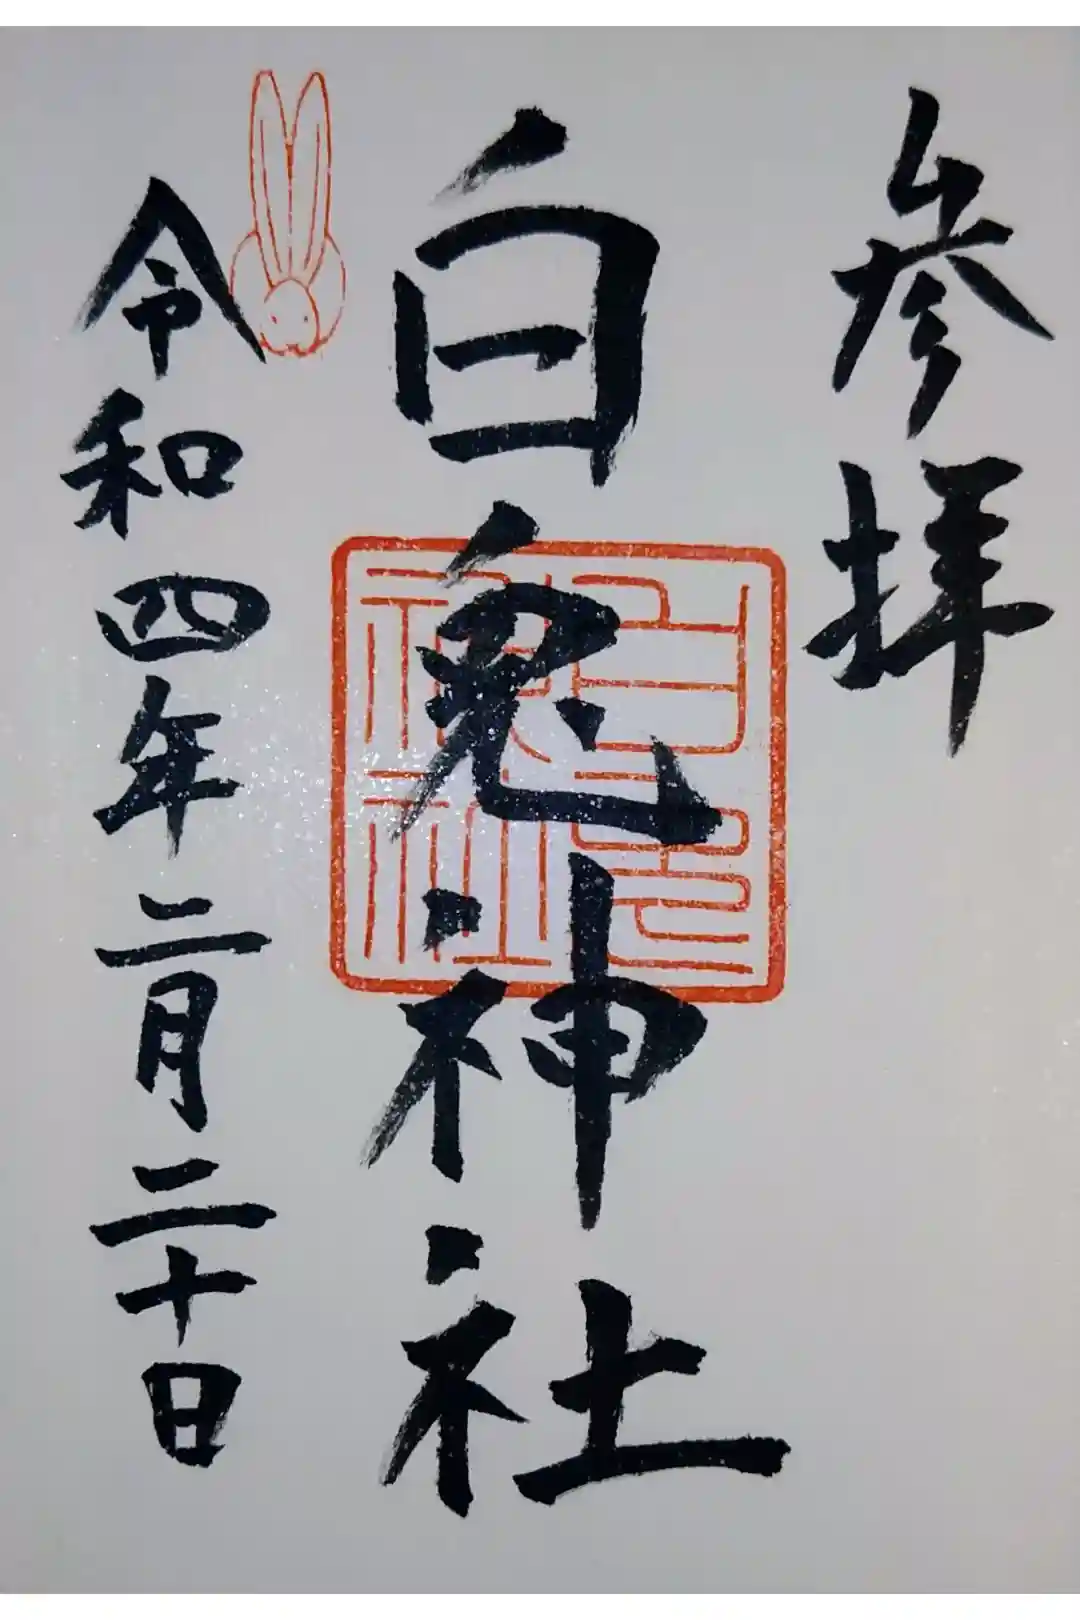 参拝
白兎神社
白兎神社
令和四年二月二十日